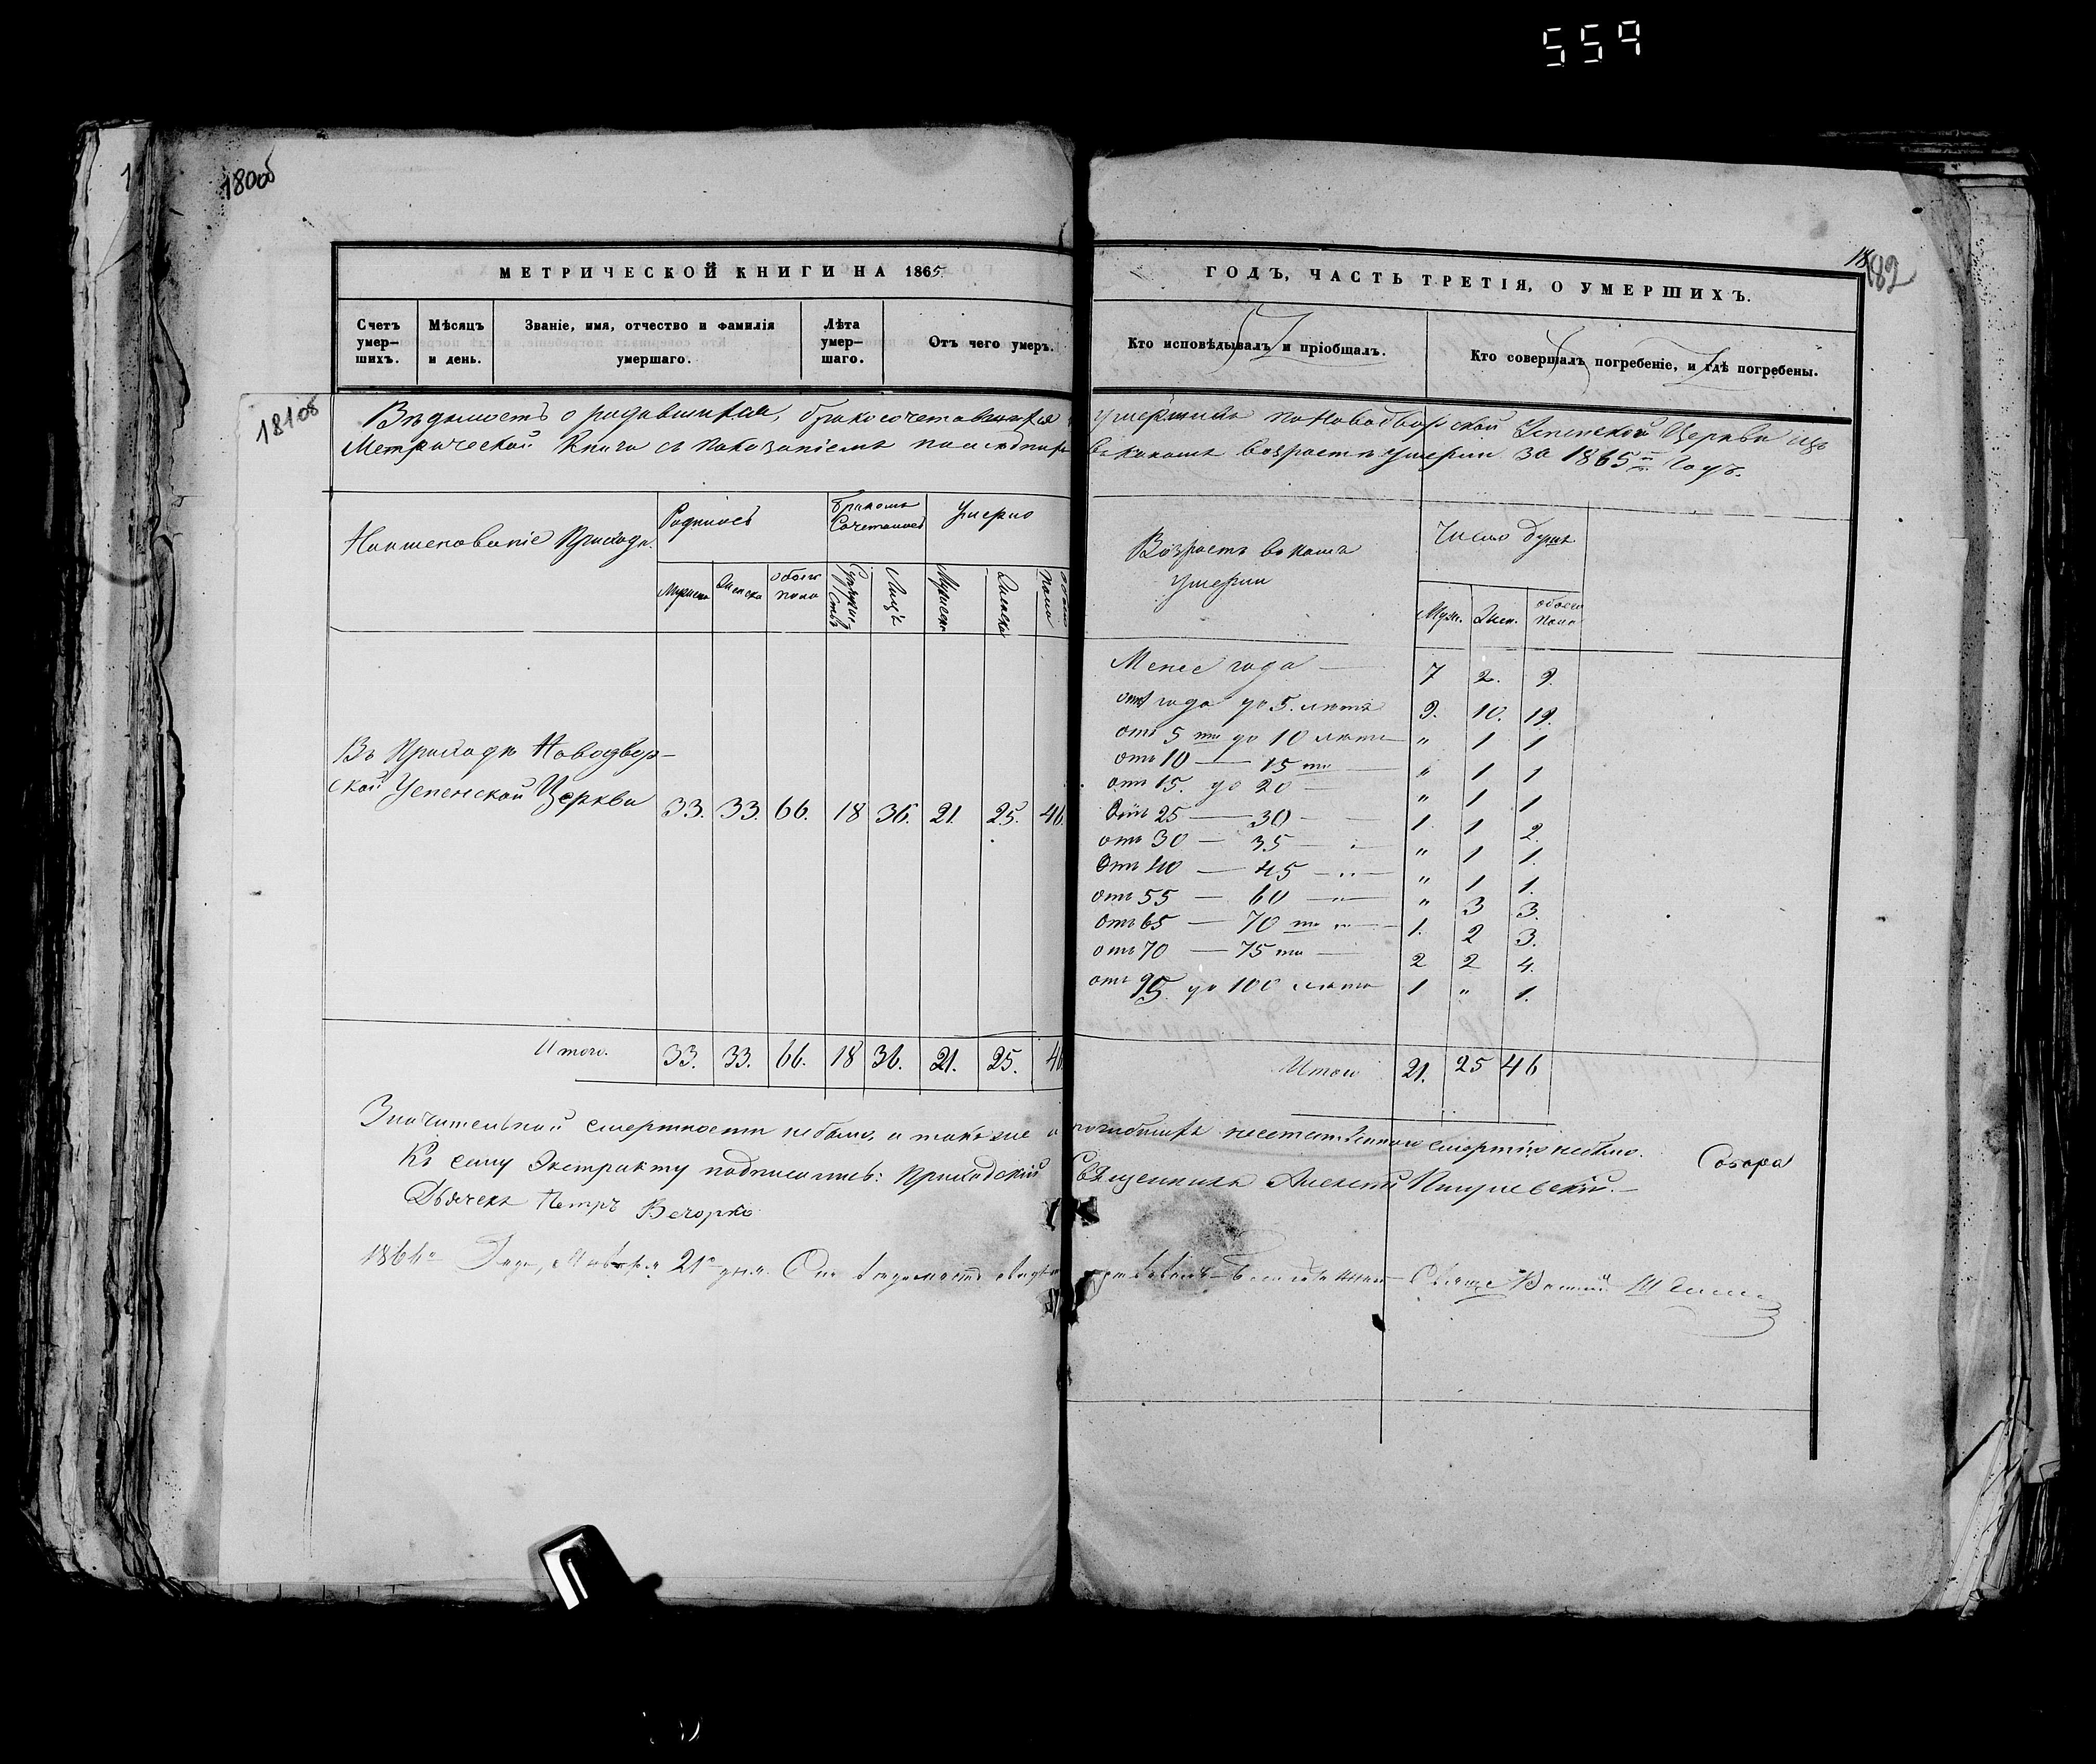 559
180об
182
МЕТРИЧЕСКОЙ КНИГИ НА 1865
ГОДЪ, ЧАСТЬ ТРЕТІЯ, О УМЕРШИХЪ.
Счетъ умер-шихъ.
Мѣсяцъ и день.
Званіе, имя, отчество и фамилія умершаго.
Лѣта умер-шаго.
Отъ чего умеръ.
Кто исповѣдывалъ и пріобщалъ.
Кто совершалъ погребеніе, и гдѣ погребены.
181об
Вѣдомость о родившихся, бракосочетавшихся
умершихъ по Новодворской Успенской Церкви изъ
Метрической Книги съ показаніемъ послѣднихъ
въ какомъ возрастѣ умерли за 1865й Годъ.
Наименованіе Прихода.
Родилось
Бракомъ Сочеталось
Умерло
Мужеска
Женска
обоего пола
Супружествъ
Лицъ
Мужеска
Женска
обоего пола
Въ Приходѣ Новодвор-
ской Успенской Церкви 33. 33. 66. 18 36. 21. 25. 46.
Итого. 33. 33. 66. 18 36. 21. 25. 46
Возрастъ въ коемъ умерли
Число душъ
Муж. Жен. обоего пола
Менее года — 7 2. 9.
отъ года до 5. лѣтъ 9. 10. 19.
отъ 5 ти до 10 лѣтъ — " 1 1
отъ 10 — 15 ти — " 1 1
отъ 15. до 20 — " 1 1
Отъ 25 — 30 — 1. 1 2.
отъ 30 — 35 — " 1 1.
Отъ 40 — 45 — " 1 1.
отъ 55 — 60 — " 3 3.
отъ 65 — 70 ти — 1. 2 3.
отъ 70 — 75 ти — 2 2 4.
отъ 95. до 100 лѣтъ 1 " 1.
Итого 21. 25 46
Значительной смертности небыло, а также и погибшихъ неестественною смертію небыло.
Къ сему Экстракту подписались: Приходскій Священникъ Алексѣй
Дьячекъ Петръ Вечорко
Года, Января 21го дня. Сію вѣдомость